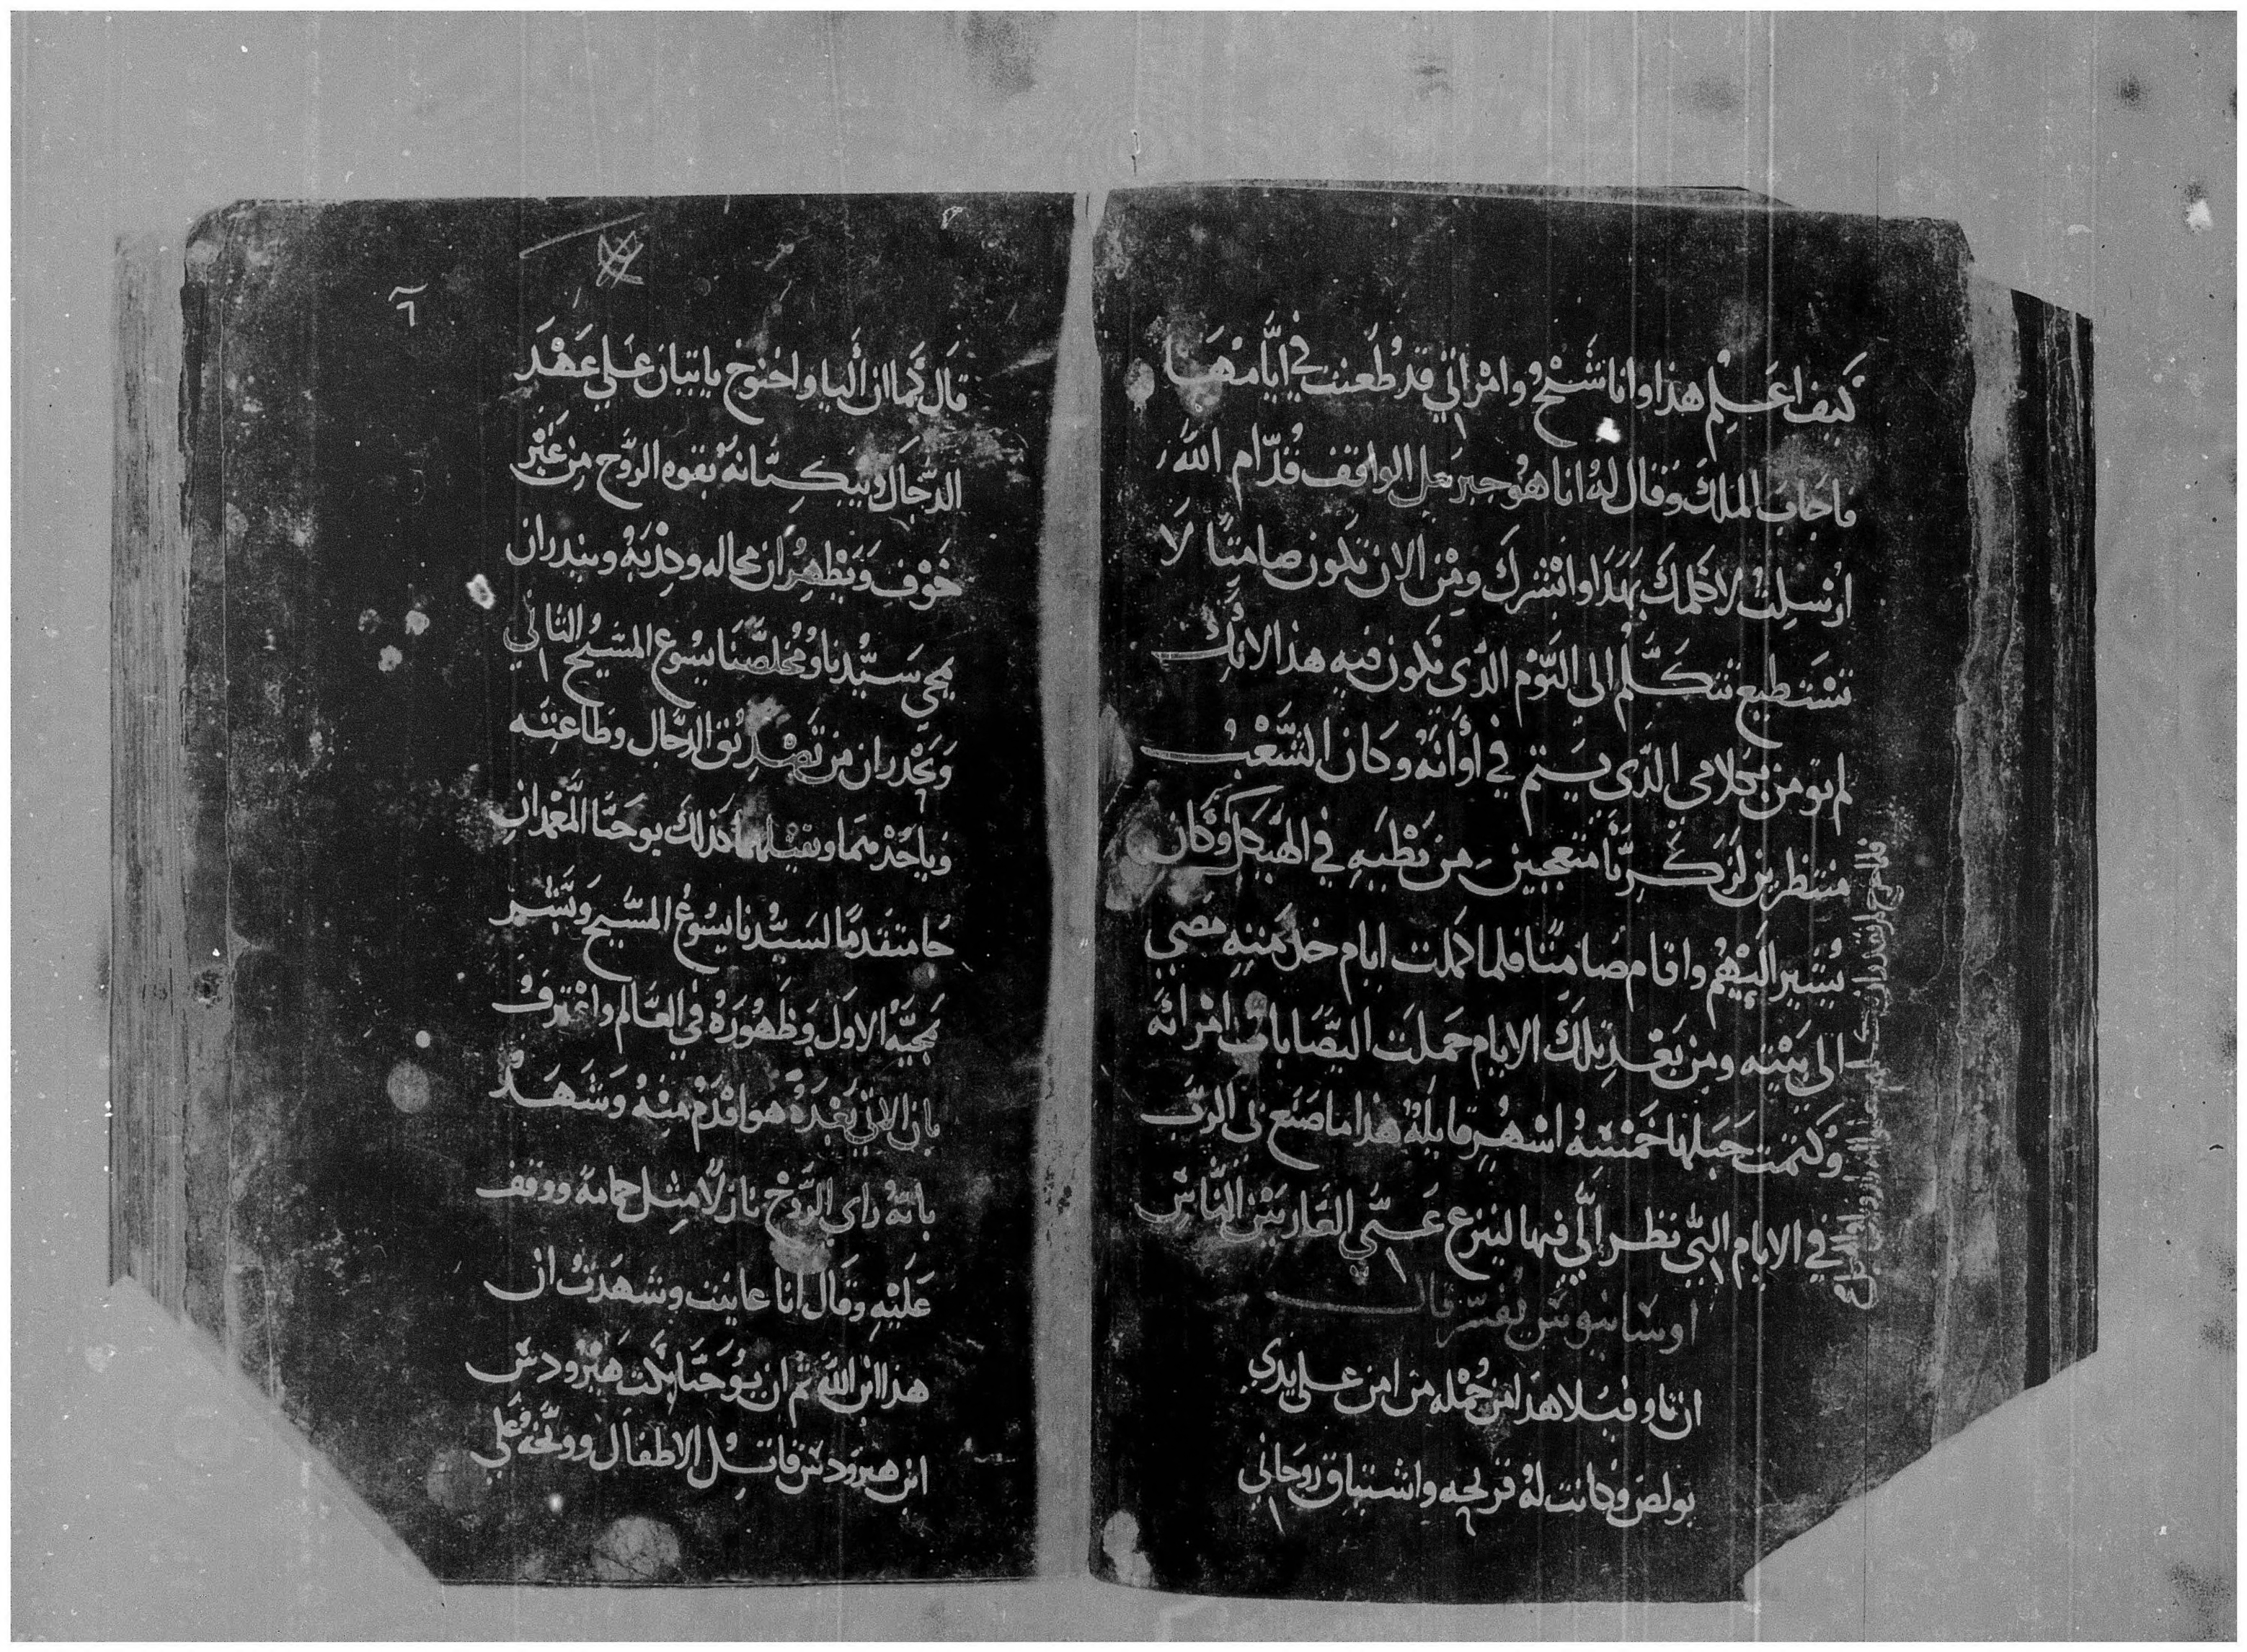 كيف اعلم هذا وانا شيخ وامراتي قد طعنت في ايامها
فاجاب الملك وقال له انا هو جبريل الواقف قدام الله
ارسلت لاكلمك بهذا وابشرك ومن الان تكون صامتا لا
تستطيع تتكلم الى اليوم الذي تكون فيه هذا لانك
لم تومن بكلامي الذي يتم في أوانه وكان الشعب
منتظرين لزكريا متعجبين من بطيه في الهيكل وكان
يشير اليهم واقام صامتا فلما كملت ايام خدمته مضي
الى بيته ومن بعد تلك الايام حملت اليصابات امراته
وكتمت حبلها خمسه اشهر قايله هذا ما صنع بي الرب
في الايام التي نظر الي فيها لينزع عني العار بين الناس
اوسابيوس يفسر قال
ان تاوفيلا هذا من جمله من امن علي يدي
بولص وكانت له قريحه واشتياق روحاني
٦
قال كما ان أليا واخنوخ ياتيان علي عهد
الدجال ويبكتانه بقوه الروح من غير
خوف ويظهران محاله وكذبه وينذران
بمجي سيدنا ومخلصنا يسوع المسيح الثاني
ويحذران من تصديق الدجال وطاعته
وياخذهما ويقتلهما كذلك يوحنا المعمدان
جا متقدما لسيدنا يسوع المسيح وبشر
بمجيه الاول وظهوره في العالم واعترف
بان الاتي بعده هو اقدم منه وشهد
بانه راي الروح نازلا مثل حمامة ووقف
عليه وقال انا عاينت وشهدت ان
هذا ابن الله ثم ان يوحنا بكت هيرودس
ابن هيرودس قاتل الاطفال ووبخه علي